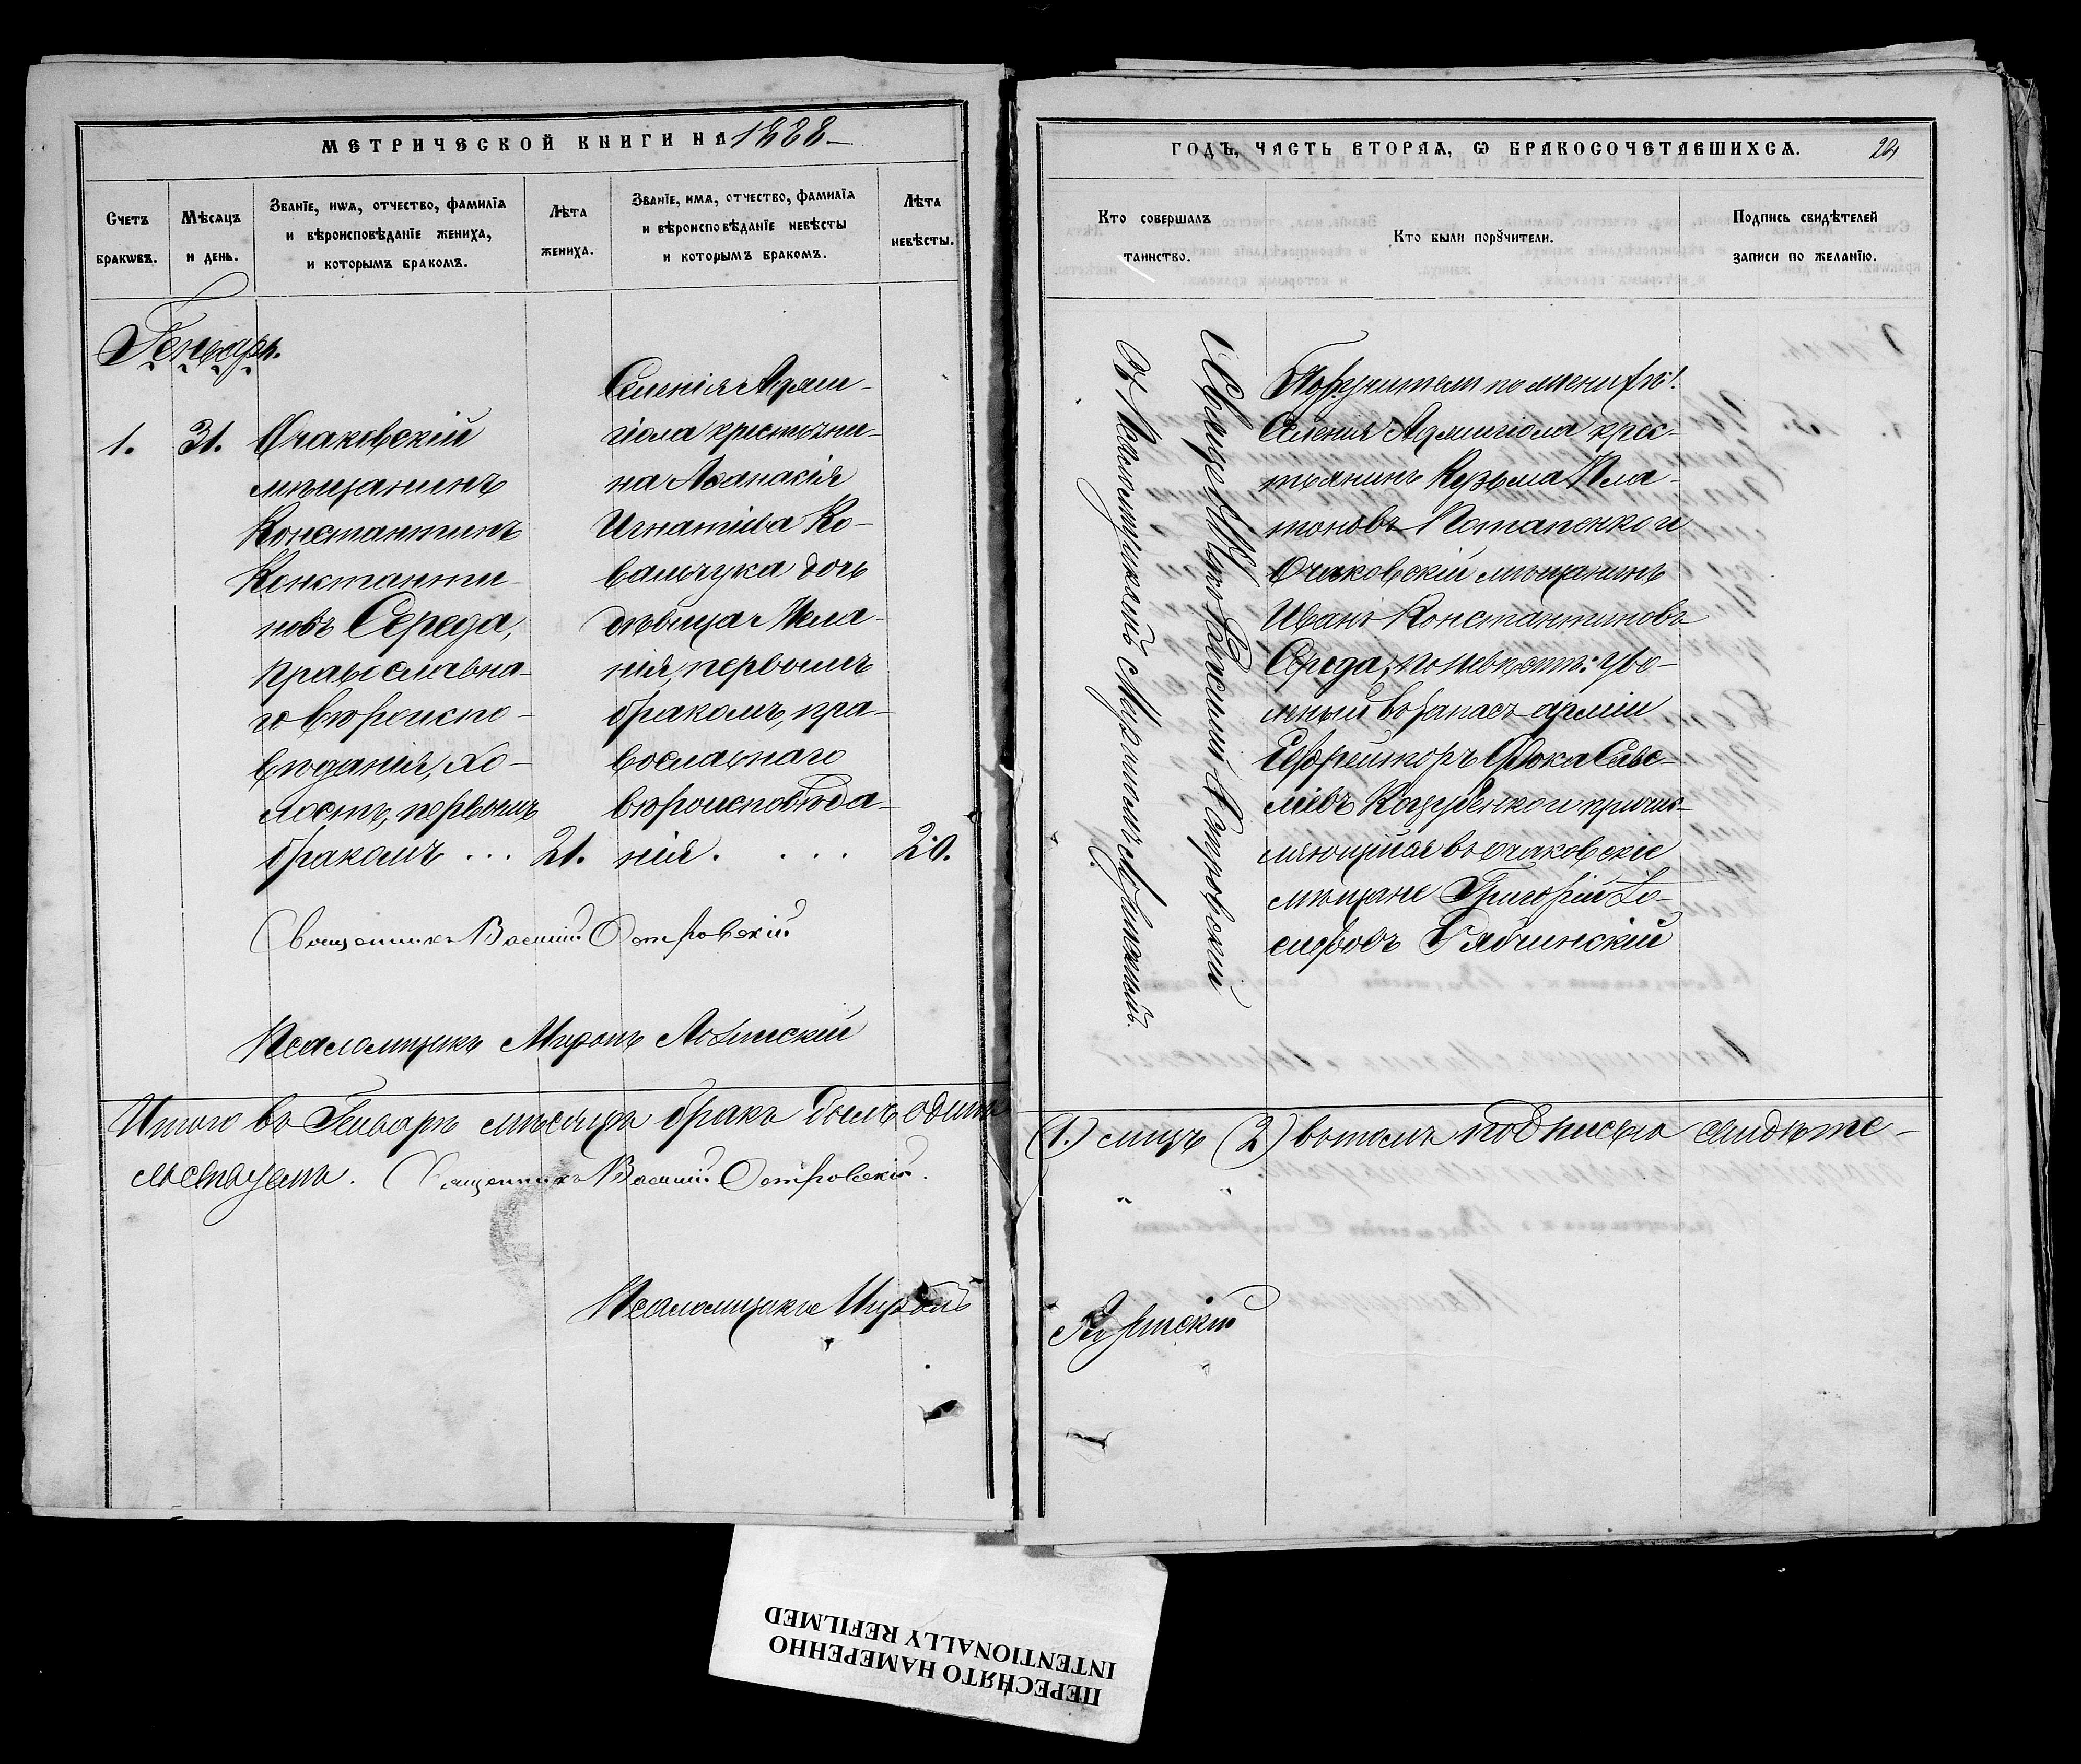 МЕТРИЧЕСКОЙ КНИГИ НА 1888
Счетъ браковъ.
Мѣсяцъ и день.
Званїе, имя, отчество, фамилїя и вѣроисповѣданїе жениха, и которымъ бракомъ.
Лѣта жениха.
Званїе, имя, отчество, фамилїя и вѣроисповѣданїе невѣсты и которымъ бракомъ.
Лѣта невѣсты.
Генварь.
1.
31.
Очаковскій
мѣщанинъ
Константинъ
Константи-
новъ Середа,
православна-
го вѣроиспо-
вѣданія, хо-
лостъ, первымъ
бракомъ ...
21.
Селенія Аджи-
гіола крестьяни-
на Аѳанасія
Игнатіева Ко-
вальчука дочь
дѣвица Мела-
нія, первымъ
бракомъ, пра-
вославнаго
вѣроисповѣда-
нія. . . .
20.
Священникъ Василій Островскій
Псаломщикъ Миронъ
Итого въ Генварѣ мѣсяцѣ бракъ былъ одинъ
льствуемъ. Священникъ Василій Островскій.
Псаломщикъ Миронъ
ГОДЪ, ЧАСТЬ ВТОРАЯ, Ѡ БРАКОСОЧЕТАВШИХСЯ.
24
Кто совершалъ таинство.
Кто были порꙋчители.
Подпись свидѣтелей записи по желанїю.
Священникъ Василий Островский
Съ Псаломщикомъ Мирономъ
Поручители по женихѣ:
Селенія Аджигіола крес-
тьянинъ Кузьма Пла-
тоновъ Потапенко и
Очаковскій мѣщанинъ
Иванъ Константиновъ
Середа; по невѣстѣ: уво-
лный въ запасъ арміи
Ефрейторъ Фока Саве-
ліевъ Коцубенко и причис-
ляющийся въ очаковскіе
мѣщане Григорій Іо-
сифовъ Рябчинскій
(1.) лицъ (2) въ томъ подписью свидѣте-
ПЕРЕСНЯТО НАМЕРЕННО
INTENTIONALLY REFILMED